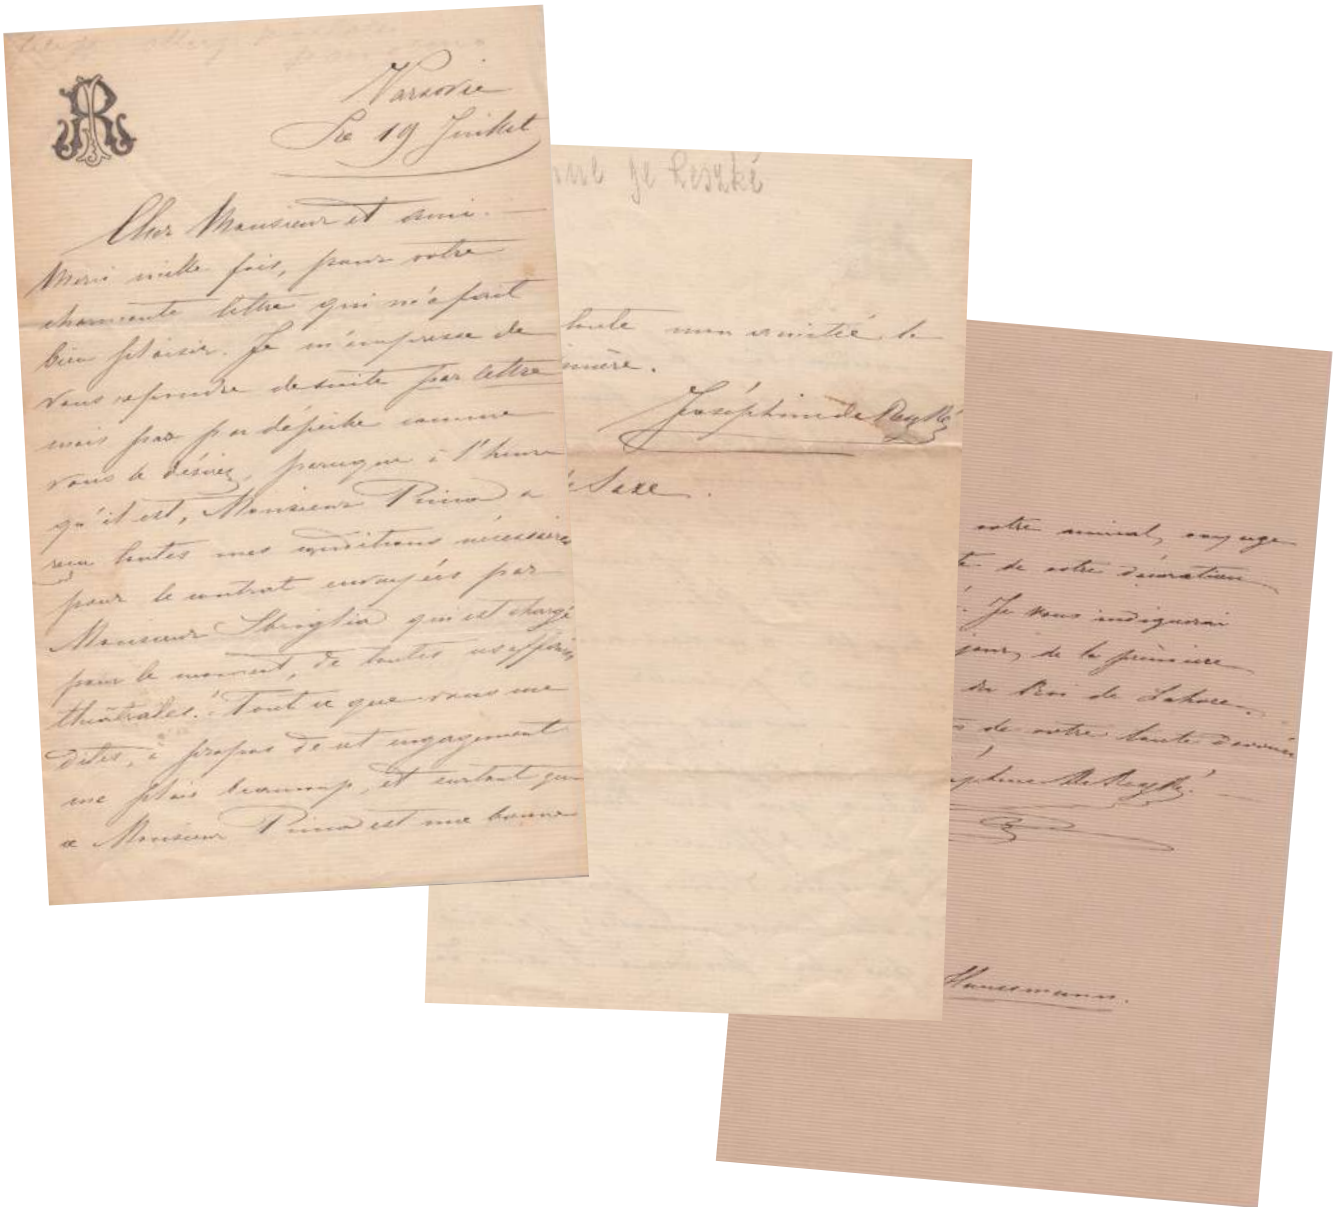 Varsovie
Le 19 Juillet
Cher Monsieur et ami.
Merci mille fois, pour votre
charmante lettre qui m'a fait
bien plaisir. Je m'empresse de
vous repondre desuite par lettre
mais pas par dépêche comme
vous le désirez, parceque à l'heure
qu'il est, Monsieur Pinna a
reçu toutes mes conditions nécessaires
pour le contrat envoyées par
Monsieur Sbriglia qui est chargé
pour le moment, de toutes nos affaires
théatrales. Tout ce que vous me
dites, à propos de cet engagement
me plais beaucoup, et surtout que
ce Monsieur Pinna est une bonne
de Reszké
toute mon amitié la
Joséphine de Reszké
Saxe.
votre amical,
de votre décoration
Je vous indiquerai
jour, de la première
du Roi de Lahore.
de votre toute dévouée
de Reszké.
Haussmann.